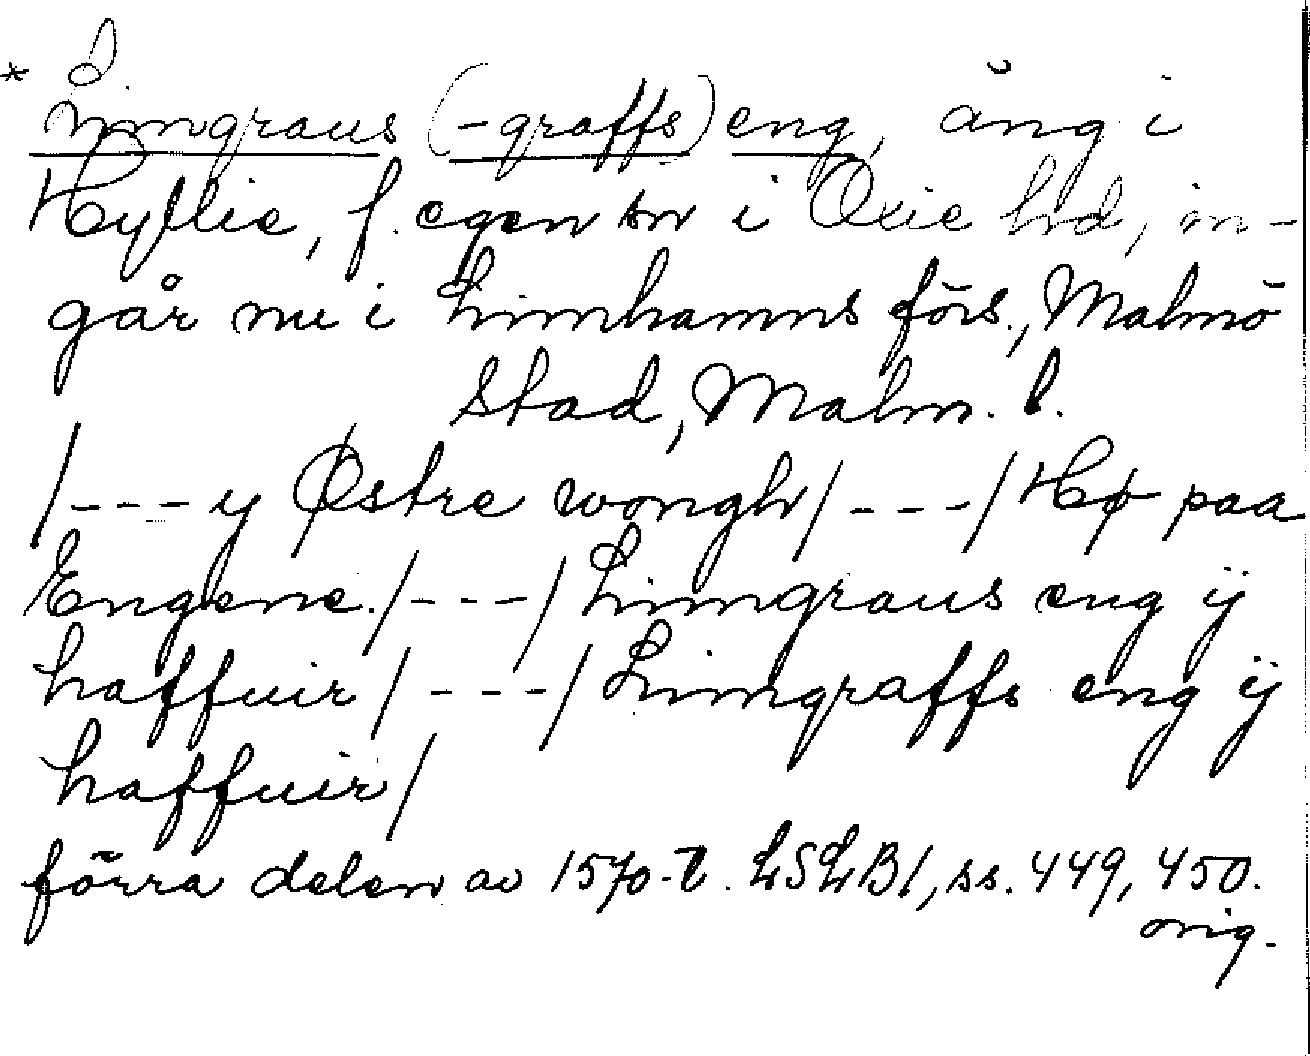 * Limgraus (-graffs) eng, äng i
Hyllie, f. egen sn i Oxie hd, in-
går nu i Limhamns förs., Malmö
stad, Malm. l.
/---y Østre wongh/---/Hø paa
Engene./---/Limgraus eng ij
haffuir/---/Limgraffs eng ij
haffuir/
förra delen av 1570-t. LSLB1, ss. 449, 450.
orig.